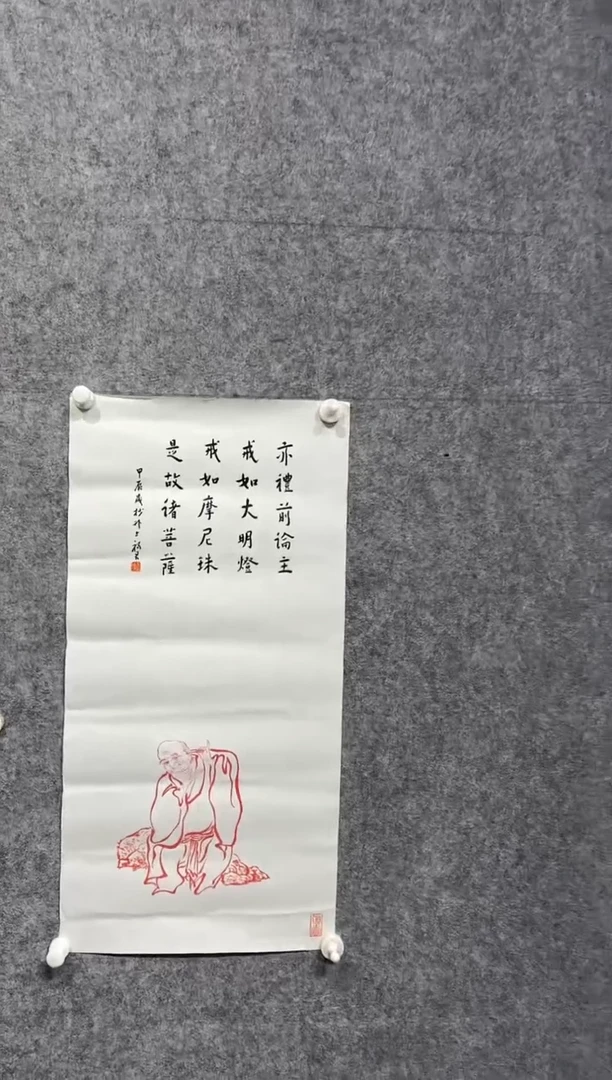 亦禮前論主
戒如大明燈
戒如摩尼珠
是故諸菩薩
甲辰歲